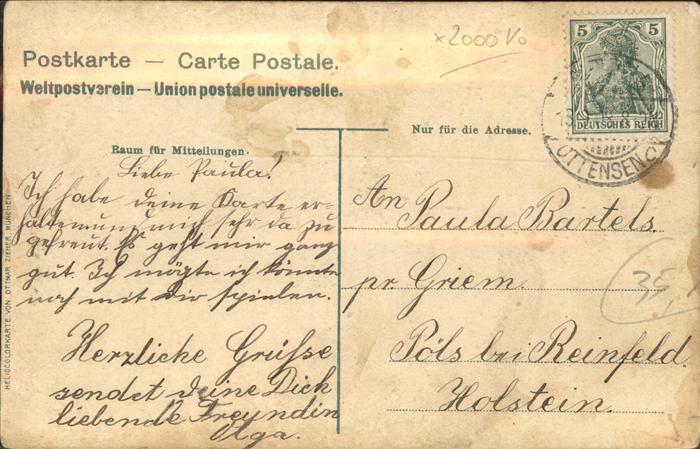 Postkarte — Carte Postale.
Weltpostverein — Union postale universelle.
×2000 Vo
5 5
DEUTSCHES REICH
OTTENSEN
Raum für Mitteilungen.
Liebe Paula!
Ich habe deine Karte er-
halten und mich sehr da zu
gefreut. Es geht mir ganz
gut. Ich mögte ich könnte
noch mit dir spielen.
Herzliche Grüsse
sendet deine Dich
liebende Freundin
Olga.
Nur für die Adresse.
An
Paula Bartels
pr Griem.
Pöls bei Reinfeld.
Holstein.
35
HELIOCOLORKARTE VON OTTMAR ZIEHER, MÜNCHEN